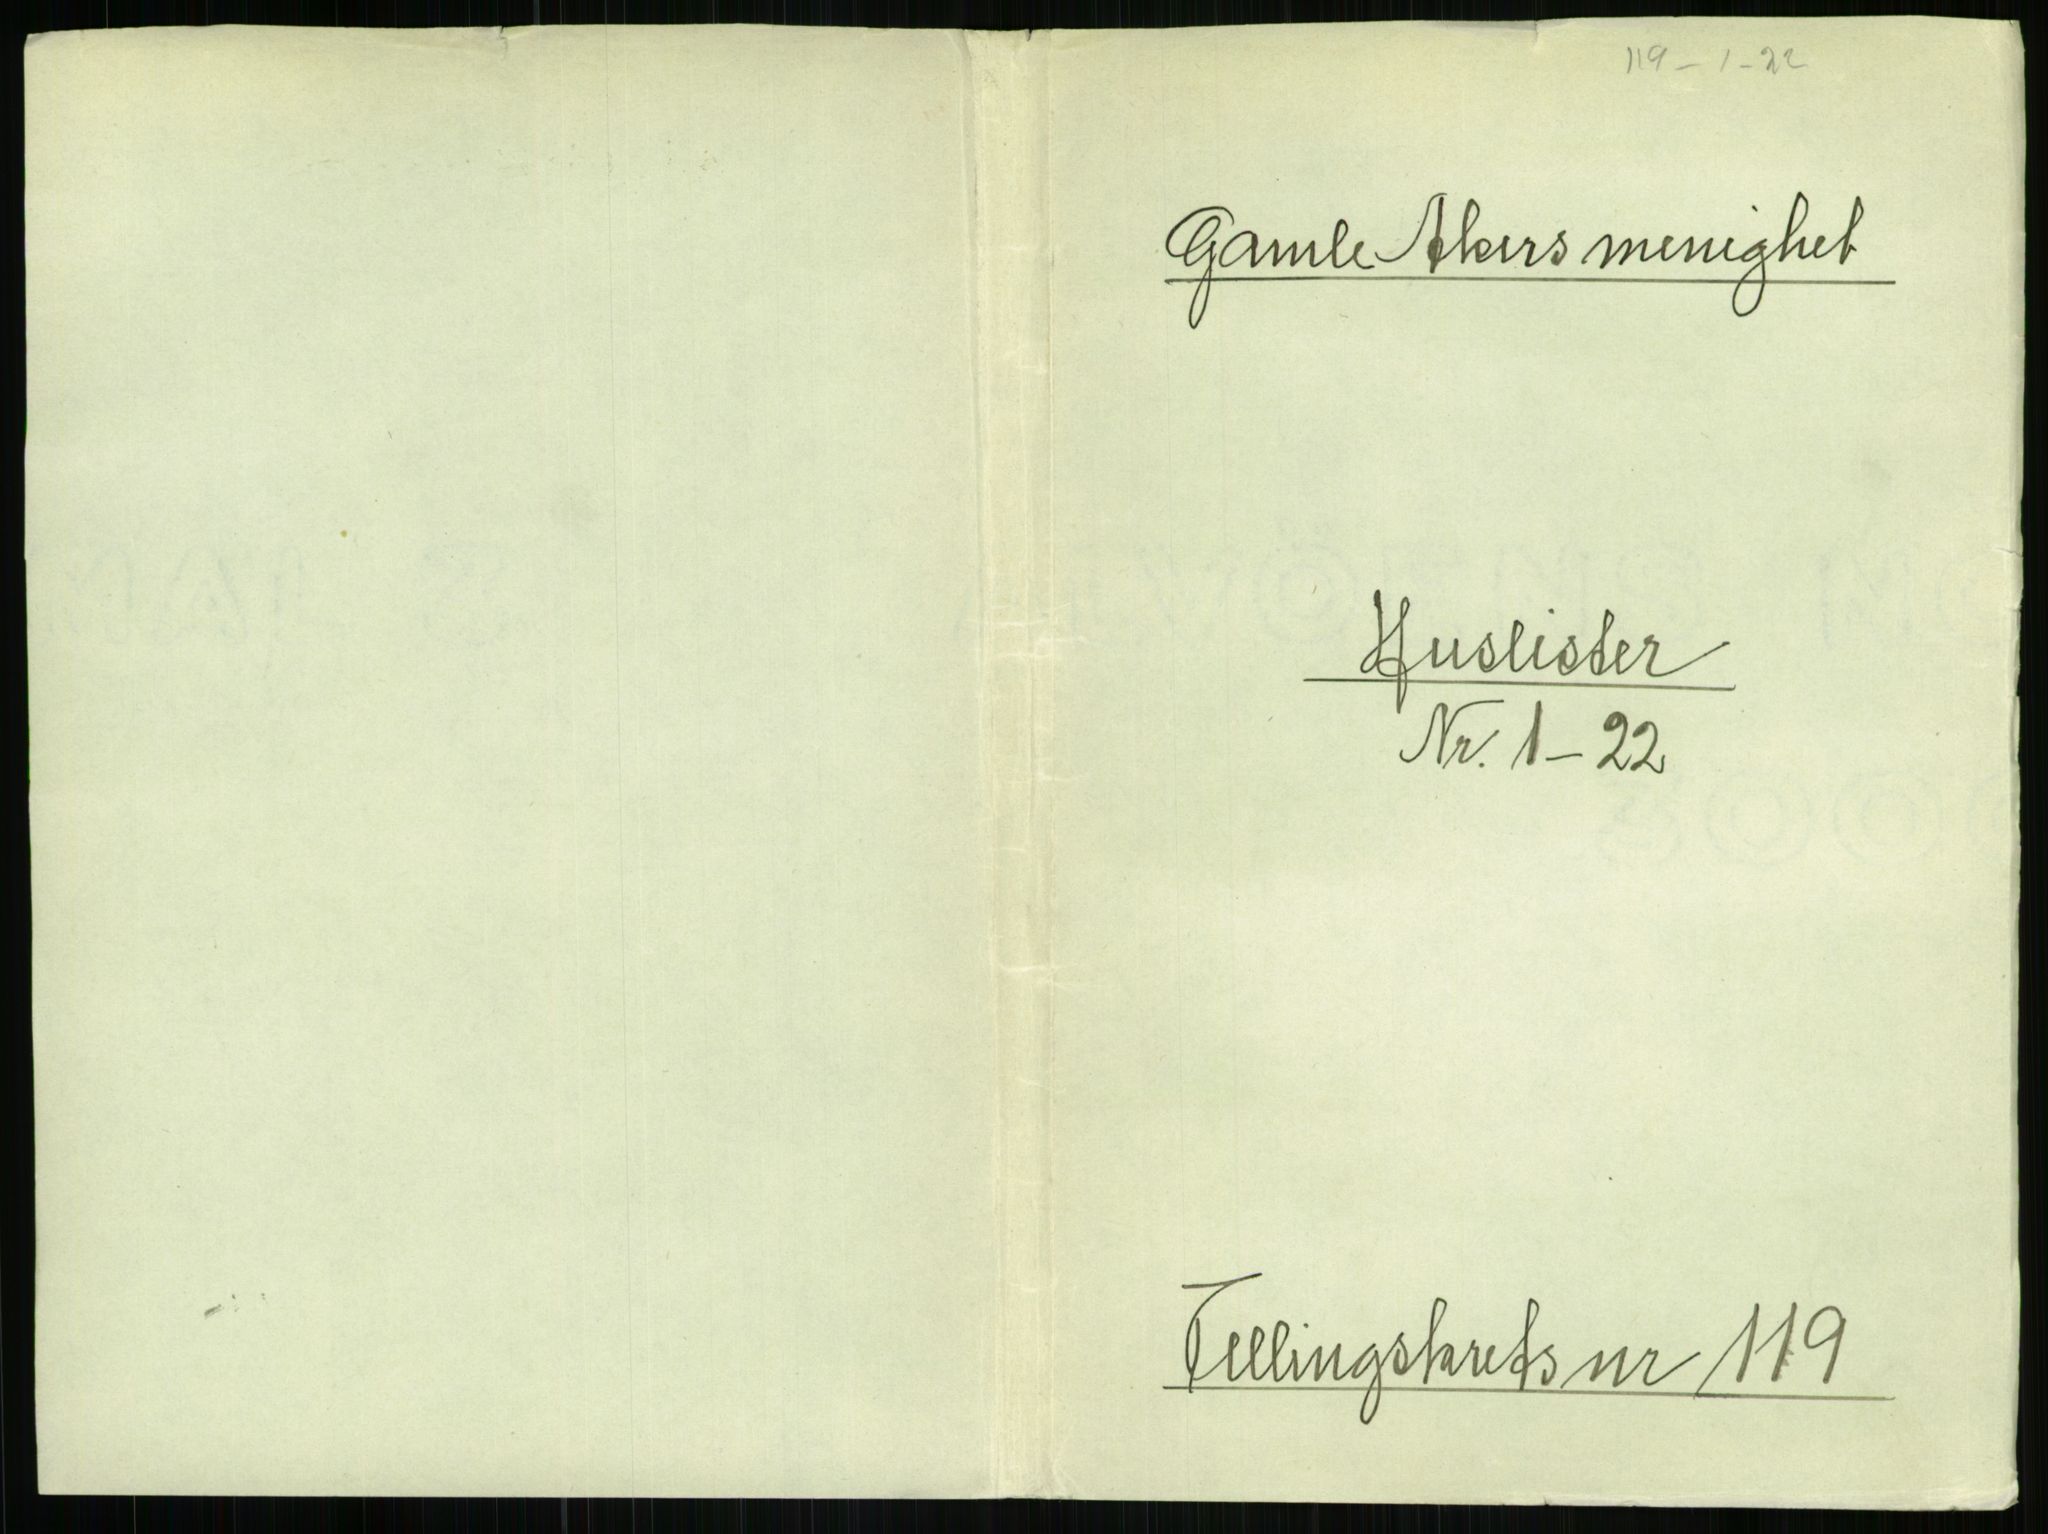 119 - 1 - 22
Gamle Akers menighet
Huslister
Nr. 1 - 22
Tellingskrets nr 119